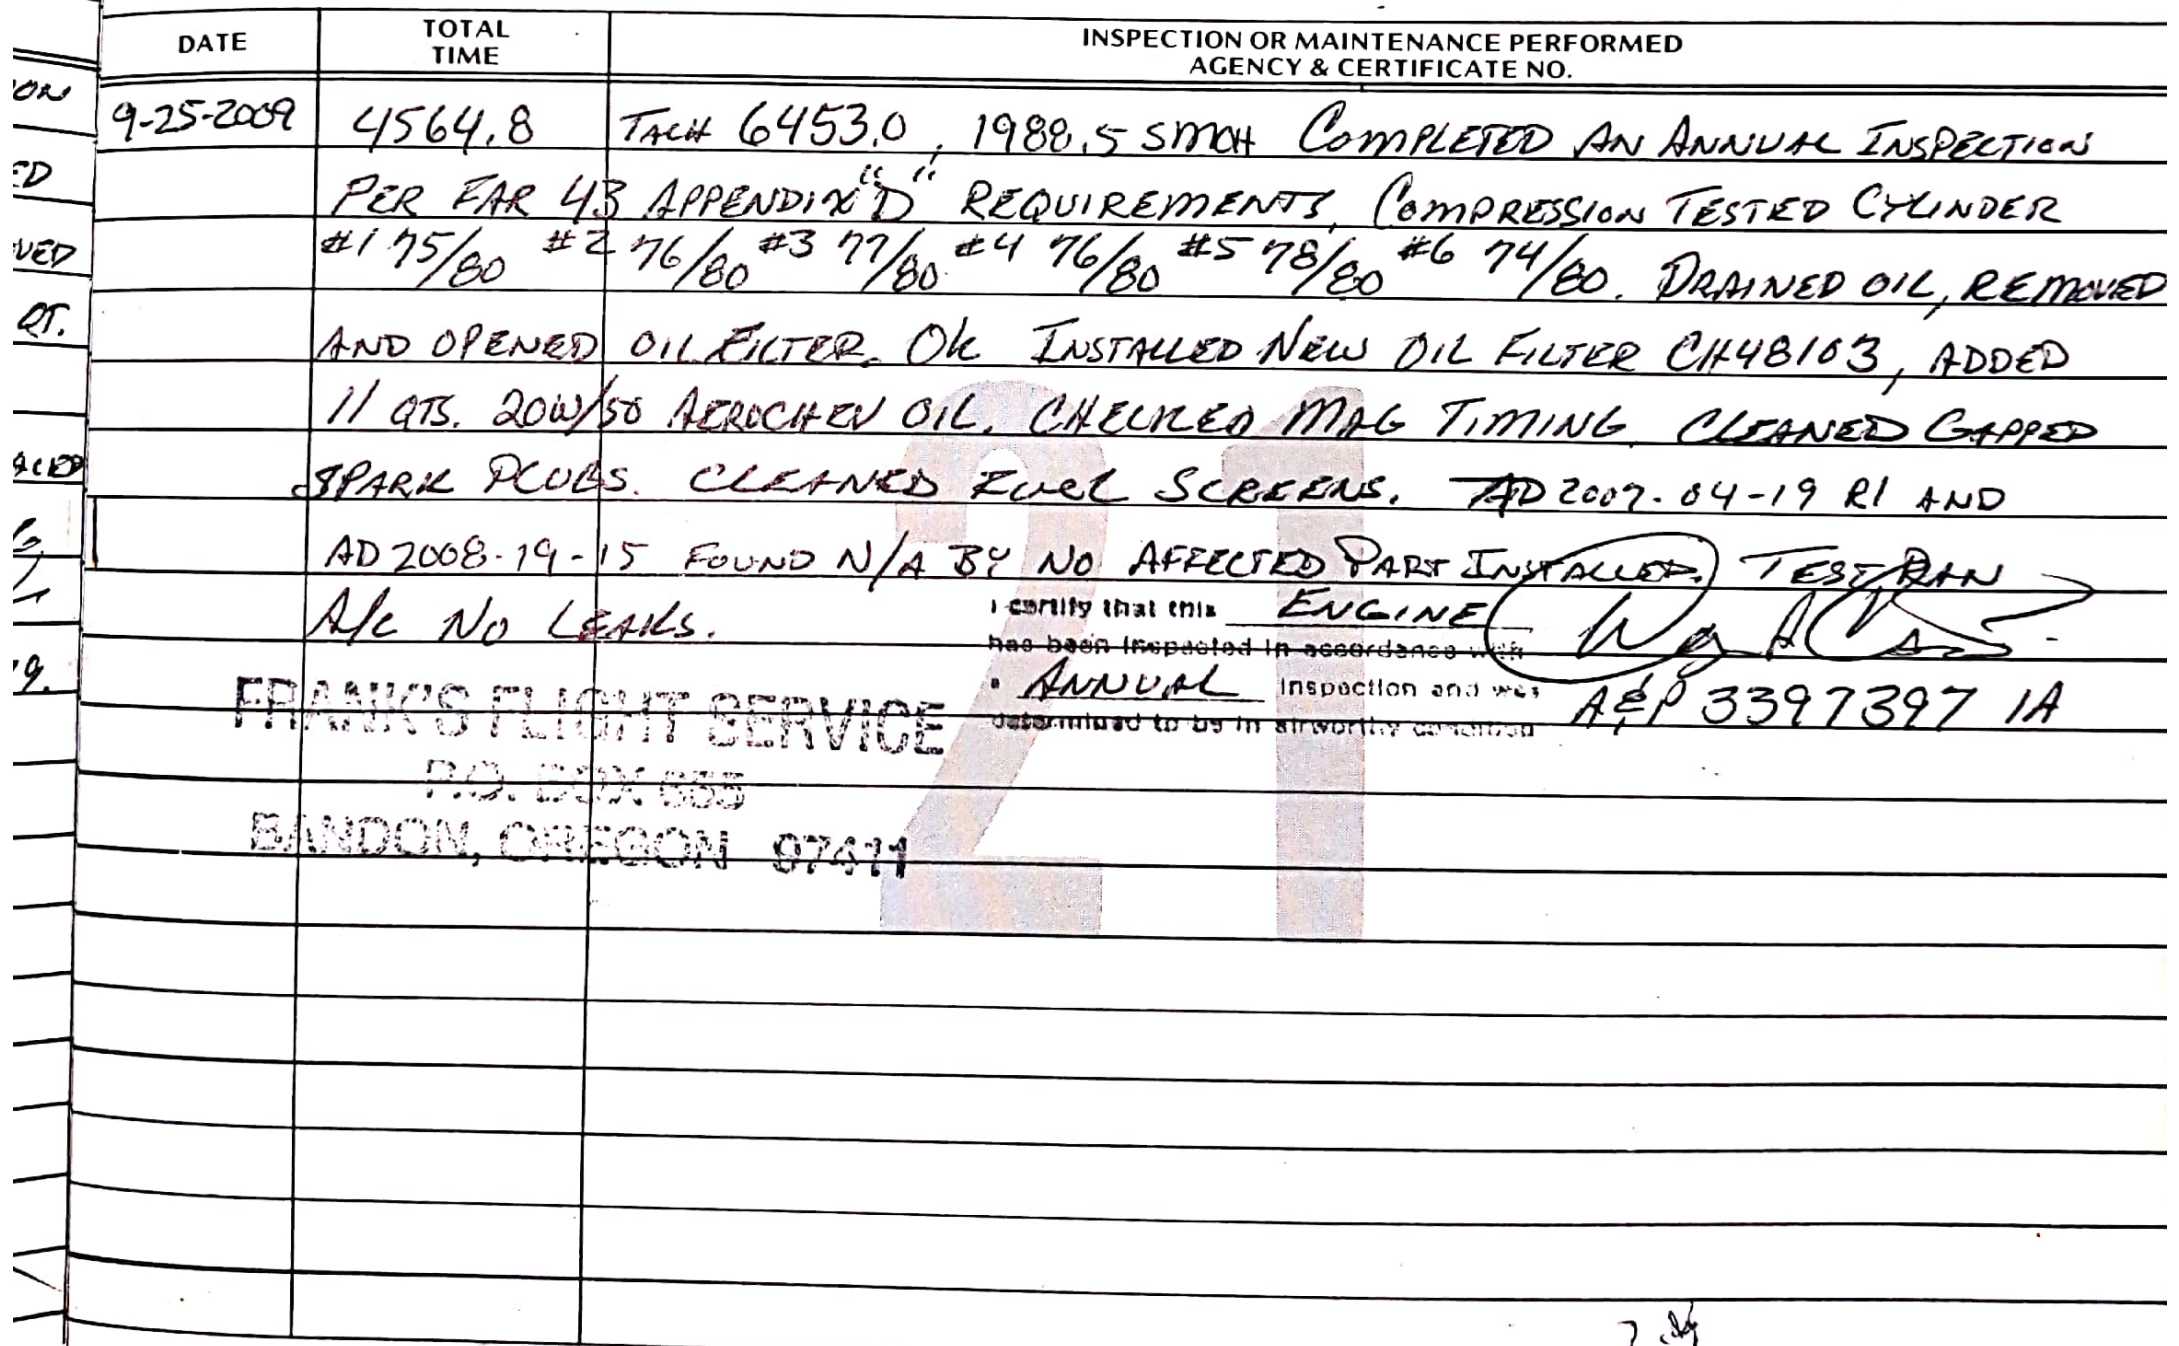 DATE TOTAL TIME INSPECTION OR MAINTENANCE PERFORMED
AGENCY & CERTIFICATE NO.
9-25-2009 4564.8 TACH 6453.0, 1988.5 SMOH COMPLETED AN ANNUAL INSPECTION
PER FAR 43 APPENDIX "D" REQUIREMENTS, COMPRESSION TESTED CYLINDER
#1 75/80 #2 76/80 #3 77/80 #4 76/80 #5 78/80 #6 74/80. DRAINED OIL, REMOVED
AND OPENED OIL FILTER. OK INSTALLED NEW OIL FILTER CH48103, ADDED
11 QTS. 20W/50 AEROCHEV OIL. CHECKED MAG TIMING. CLEANED GAPPED
SPARK PLUGS. CLEANED FUEL SCREENS. AD 2007-04-19 R1 AND
AD 2008-19-15 FOUND N/A BY NO AFFECTED PART INSTALLED. TEST RAN
A/C NO LEAKS.
I certify that this ENGINE
has been inspected in accordance with
ANNUAL inspection and was
determined to be in airworthy condition
A&P 3397397 IA
FRANK'S FLIGHT SERVICE
P.O. BOX 655
BANDON, OREGON 97411
21
ON
ED
VED
QT.
ACED
9.